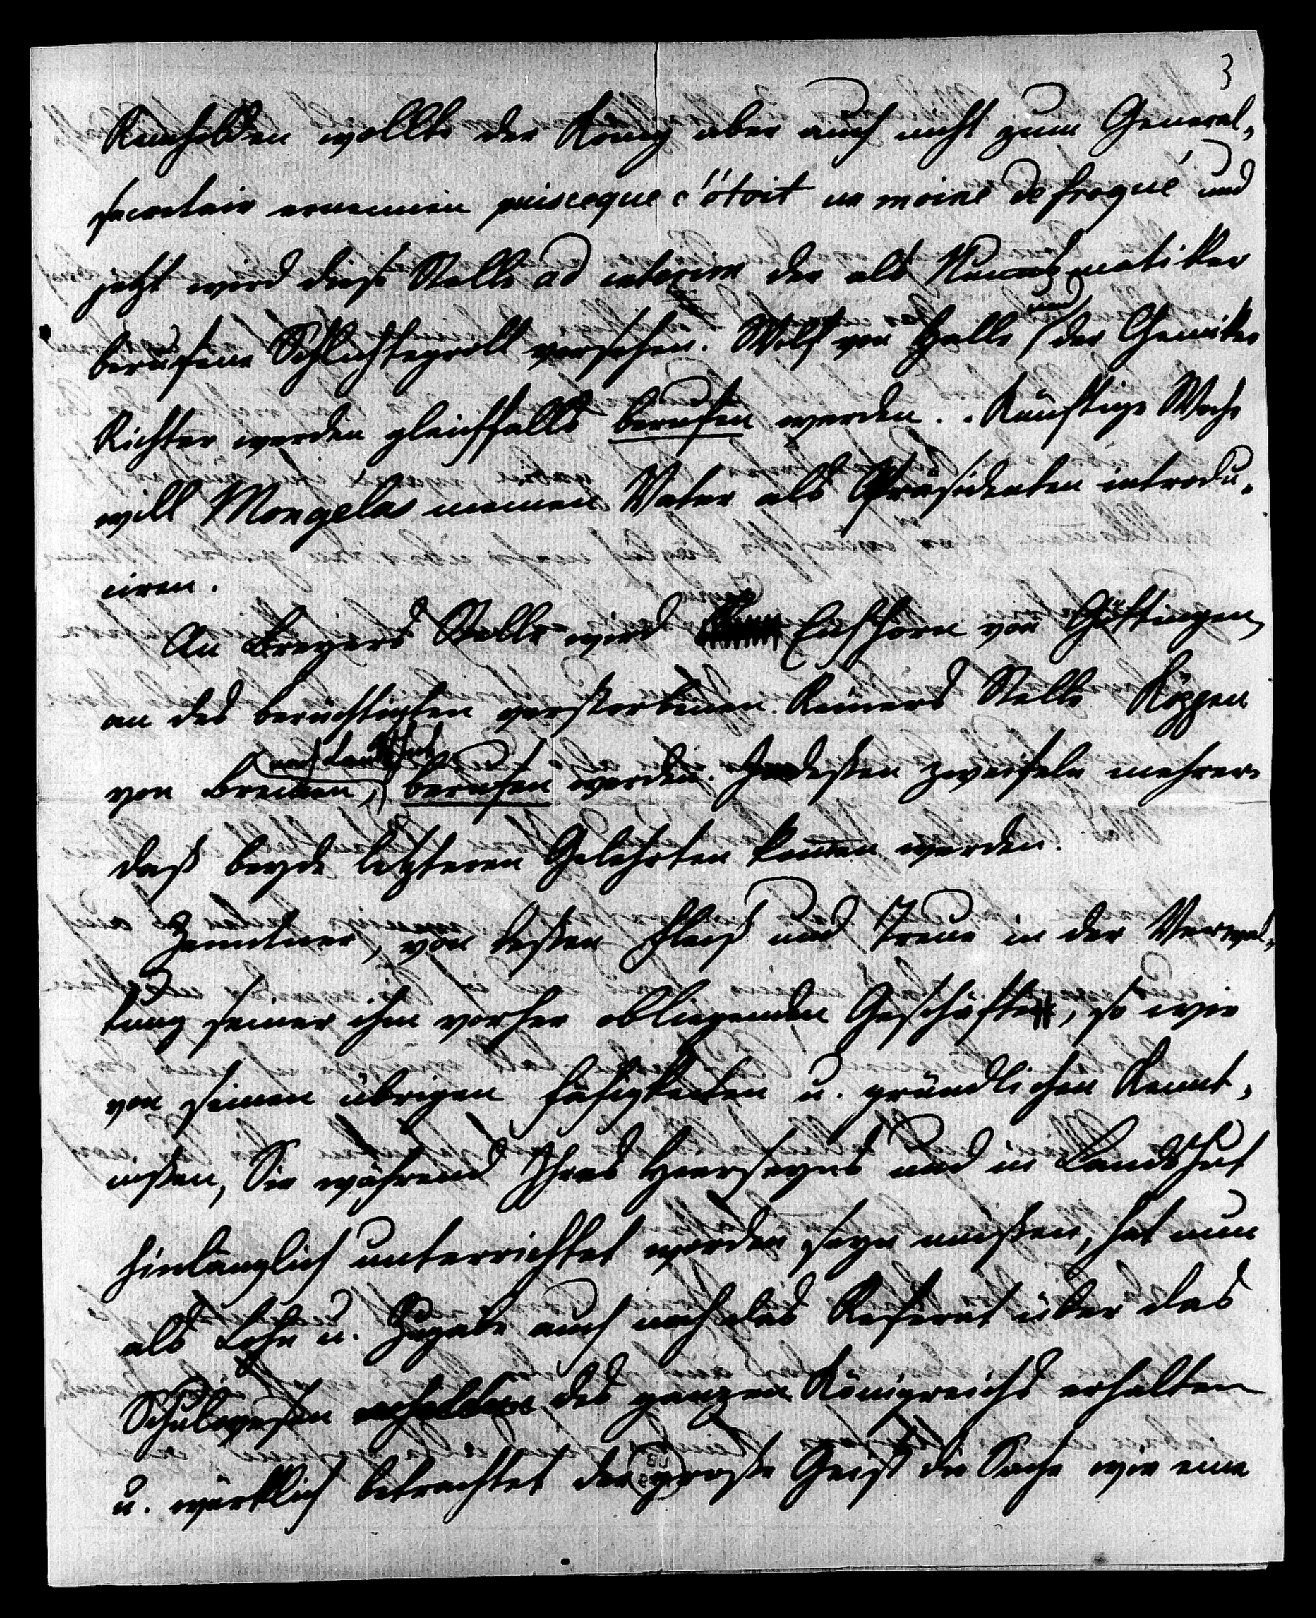 3
Reinholden wollte der König aber auch nicht zum General-
secretair ernennen puisceque c'étoit un moine defroqué und
jetzt wird diese Stelle ad interim der als Numismatiker
berufene Schlichtegroll versehen. Wolf von Halle und der Chemiker
Richter werden gleichfalls berufen werden. Künftige Woche
will Mongelas meinen Vater als Präsidenten introdu-
ciren.
An Breyers Stelle wird Eichhorn von Göttingen
an des berüchtigten verstorbenen Reiners Stelle Köppen
von Bremen, nach Landshut berufen werden. Indessen zweifeln mehrere
daß beyde letzteren Gelehrten kommen werden.
Zentner, von deßen Fleiß und Treue in der Verwal-
tung seiner ihm vorher obliegenden Geschäfte, so wie
von seinen übrigen Fähigkeiten u. gründlichen Kennt-
nißen, Sie während Ihres Hierseyns und in Landshut
hinlänglich unterrichtet worden seyn müßen, hat nun
als Lohn u. Zugabe auch noch das Referat über das
Schulwesen des ganzen Königreichs erhalten
u. würklich betrachtet der große Geist die Sache wie eine